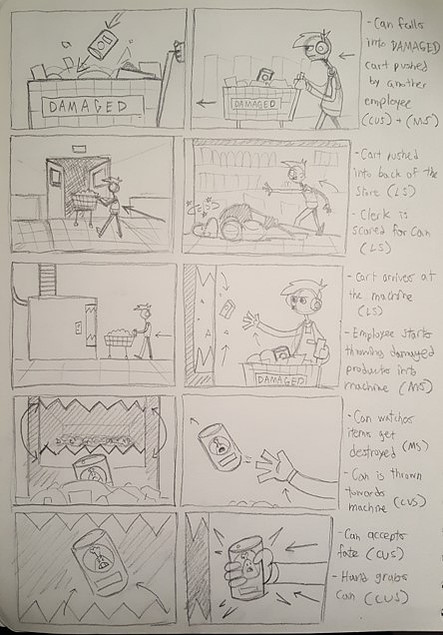 DAMAGED
DAMAGED
- Can falls
into DAMAGED
cart pushed
by another
employee
(CUS) + (MS)
- Cart pushed
into back of the
store (LS)
- Clerk is
scared for Can
(LS)
- Cart arrives at
the machine
(LS)
- Employee starts
throwing damaged
products into
machine (MS)
DAMAGED
- Can watches
items get
destroyed (MS)
- Can is thrown
towards
machine (CUS)
- Can accepts
fate (CUS)
- Hand grabs
Can (CUS)